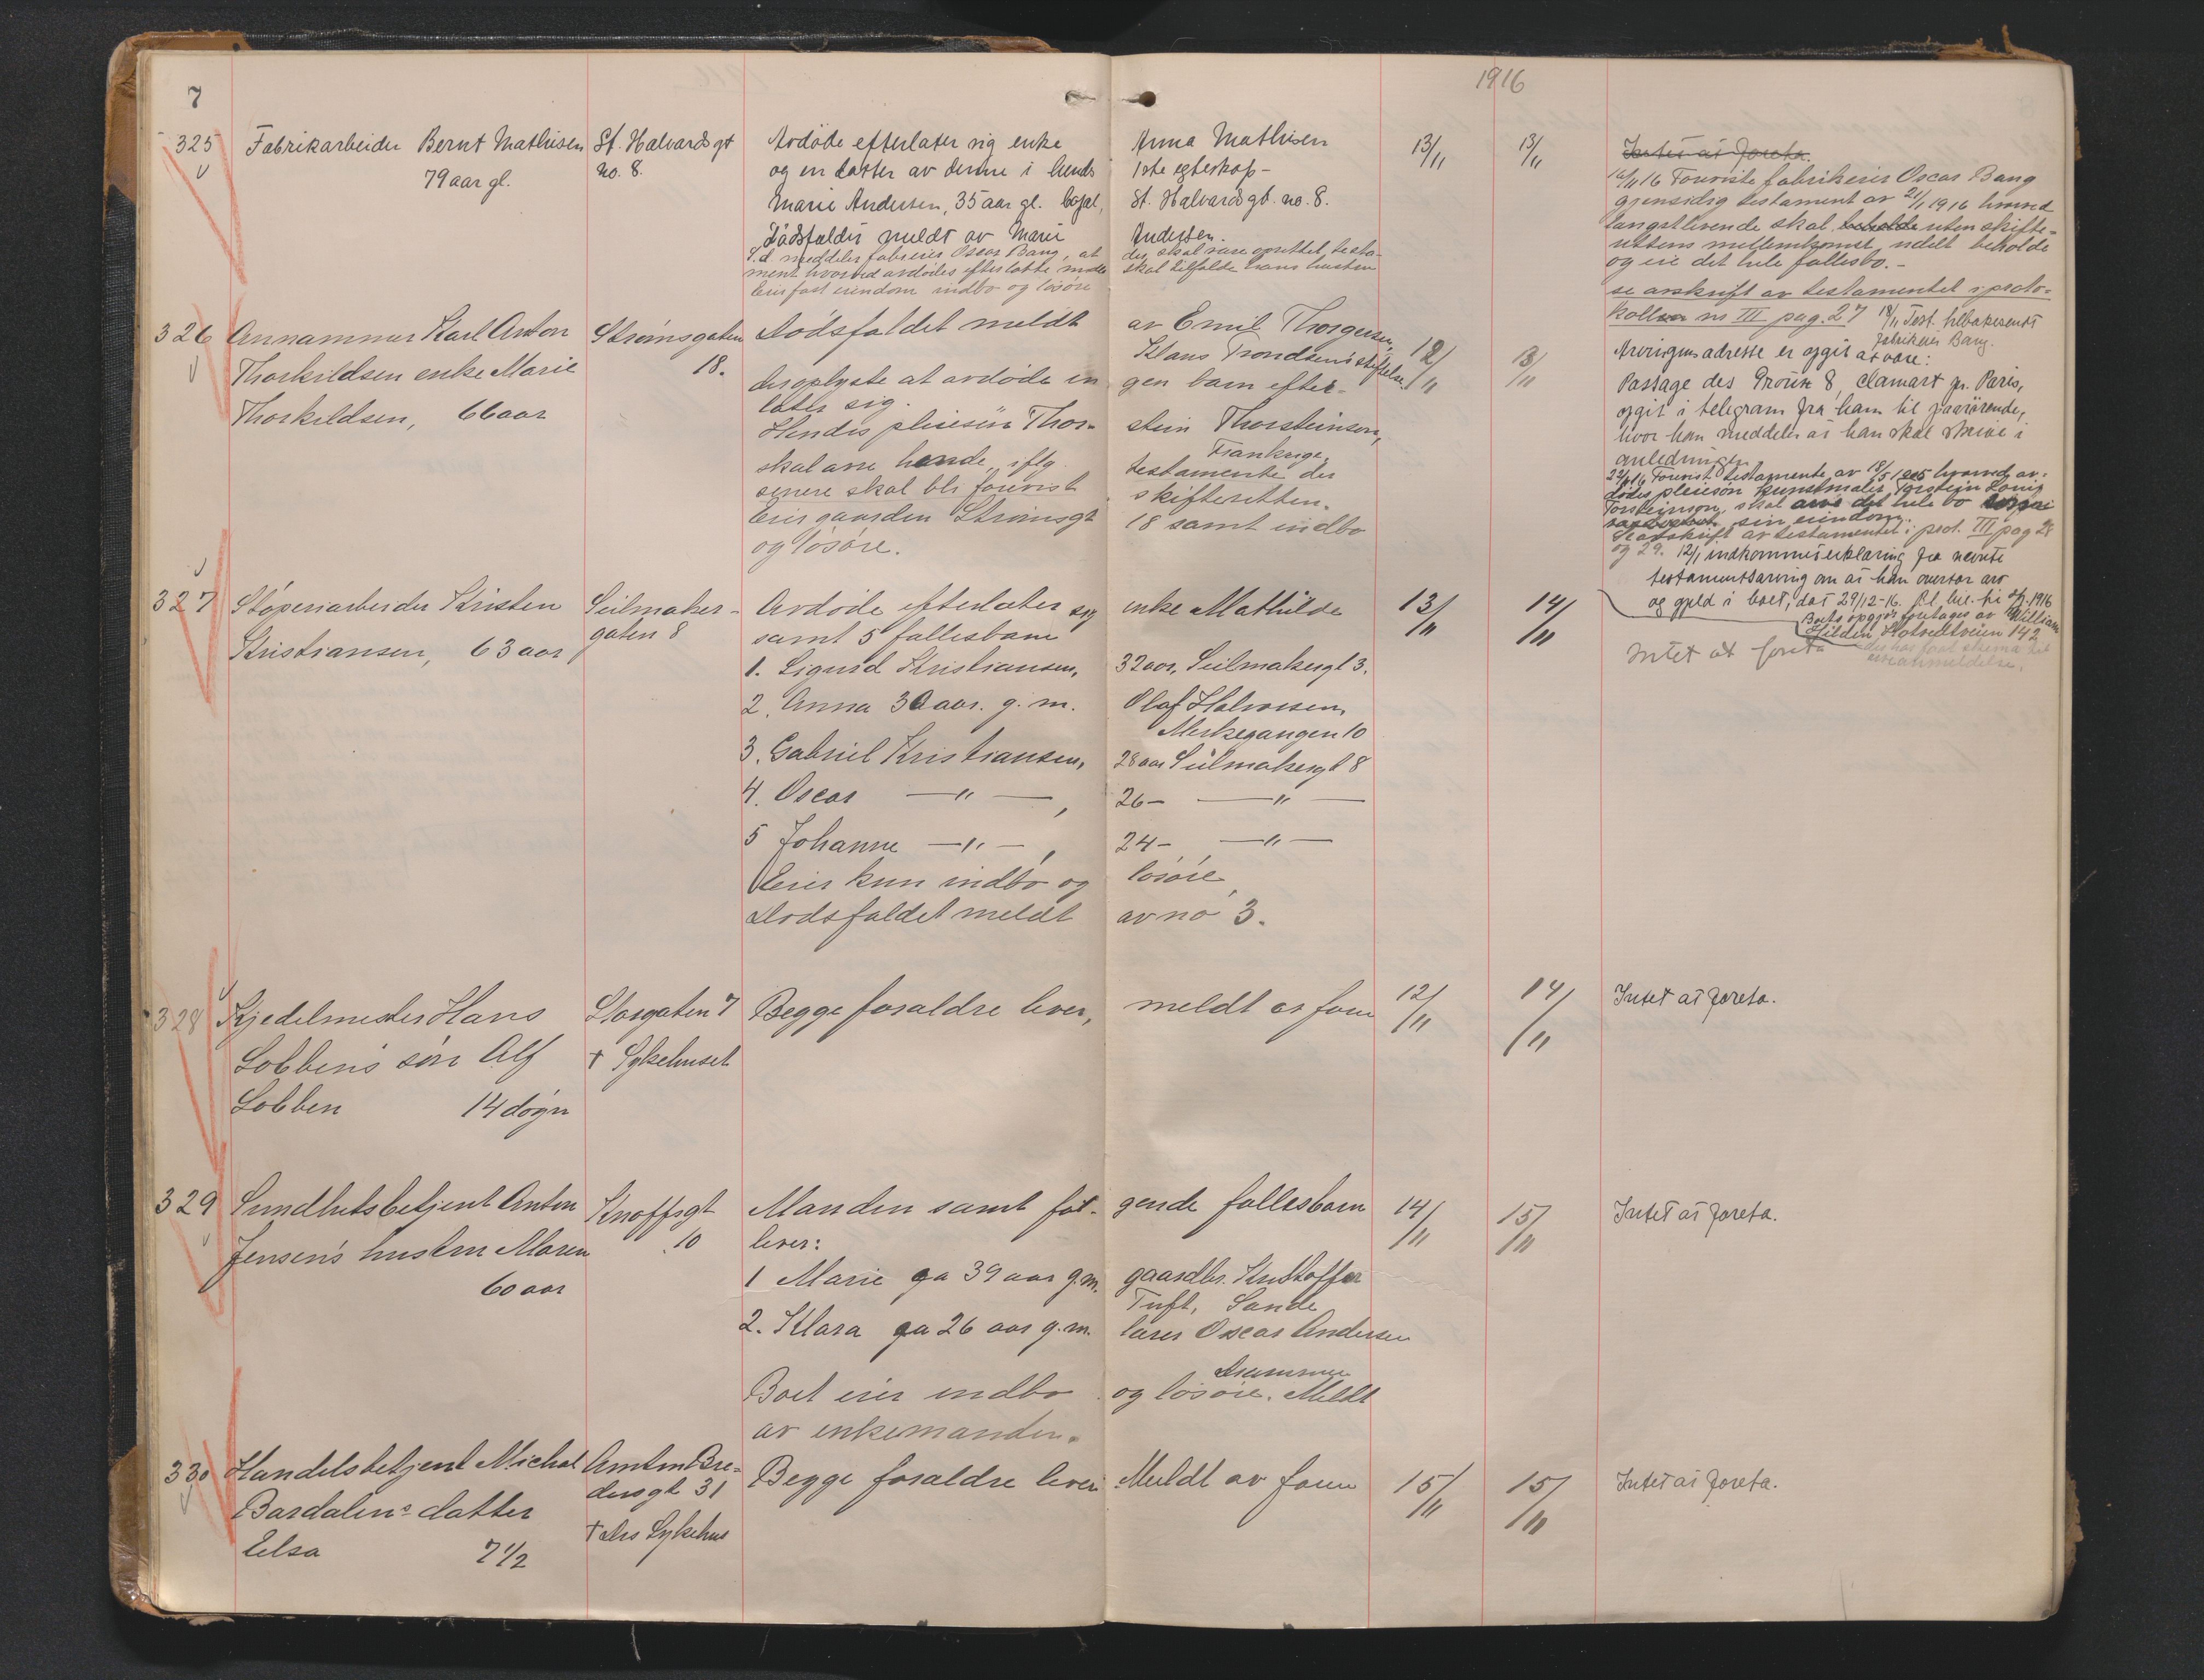 7
1916
325
Fabrikarbeider Bernt Mathisen
79 aar gl.
St. Halvards gt
no. 8.
Avdøde efterlater sig enke Anna Mathisen
og en datter av denne i hends 1ste egteskap -
Marie Andersen, 35 aar gl. St. Halvards gt. no. 8.
Dødsfaldet meldt av Marie Andersen.
S.d. meddeler fabrikeier Oscar Bang, at der skal være oprettet testa-
ment hvorved avdødes efterlatte skal tilfalde hans hustru
Eier fast eiendom indbo og løsøre
13/11
13/11
Intet at foreta.
16/11 16 Foreviste fabrikeier Oscar Bang
gjensidig testament av 21/1 1916 hvorved
længstlevende skal beholde uten skifte-
rettens mellemkomst udelt beholde
og eie det hele fællesbo. -
se avskrift av testamentet i proto-
kollen nr III pag. 27 18/11 Test. tilbakesendt
fabrikeier Bang.
326
Annammer Karl Anton
Thorkildsen enke Marie
Thorkildsen, 66 aar
Strømsgaten
18.
Dødsfaldet meldt av Emil Thorgersen,
Klaus Trondsens stiftelse
der oplyste at avdøde in gen barn efter-
later sig.
Hendes pleiesøn Thor- stein Thorsteinson,
Frankerige,
skal arve hende, iflg. testamente der
senere skal bli forevist skifteretten.
Eier gaarden Strømsgt 18 samt indbo
og løsøre.
12/11
13/11
Arvingens adresse er opgit at være:
Passage des 8, Clamart pr. Paris,
opgit i telegram fra ham til paarørende,
hvor han meddeler at han skal skrive i
anledningen
22/11 16 Forevist testamente av 18/5 1915 hvorved av-
dødes pleiesøn kunstmaler Torstein Louis
Torsteinson, skal arve det hele bo
sin eiendom.
Se avskrift av testamentet i prot. III pag 28
og 29. 12/1 indkommet erklæring fra nævnte
testamentsarving om at han overtar arv
og gjeld i boet, dat 29/12-16.
Boets opgjør foretages av William
Hilden, Hotvedtveien 142
der har faat skema til
arveanmeldelse.
327
Støperiarbeider Kristen
Kristiansen, 63 aar
Seilmaker-
gaten 8
Avdøde efterlater sig enke Mathilde
samt 5 fællesbarn
1. Sigurd Kristiansen, 32 aar, Seilmakergt 3.
2. Anna 30 aar. g. m. Olaf Halvorsen,
Merkegangen 10
3. Gabriel Kristiansen, 28 aar Seilmakergt 8
4. Oscar —"—, 26 - —"—
5 Johanne —"—, 24 -, —"—
Eier kun indbo og løsøre,
Dødsfaldet meldt av no 3.
13/11
14/11
Intet at foreta
328
Kjedelmester Hans
Lobben's søn Alf
Lobben 14 døgn
Storgaten 7
† Sykehuset
Begge forældre lever, meldt av faren
12/11
14/11
Intet at foreta.
329
Sundhetsbetjent Anton
Jensen's hustru Maren
60 aar
Knoffsgt
10
Manden samt føl- gende fællesbarn
lever:
1 Marie ca 39 aar g.m. gaardbr. Kristoffer
Tuft, Sande
2. Klara ca 26 aar g.m. lærer Oscar Andersen
Drammen
Boet eier indbo og løsøre. Meldt
av enkemanden.
14/11
15/11
Intet at foreta.
330
Handelsbetjent Michal
Bardalens datter
Elsa 7 1/2
Amtm Bre-
dersgt 31
† Drs Sykehus
Begge forældre lever. Meldt av faren
15/11
15/11
Intet at foreta.